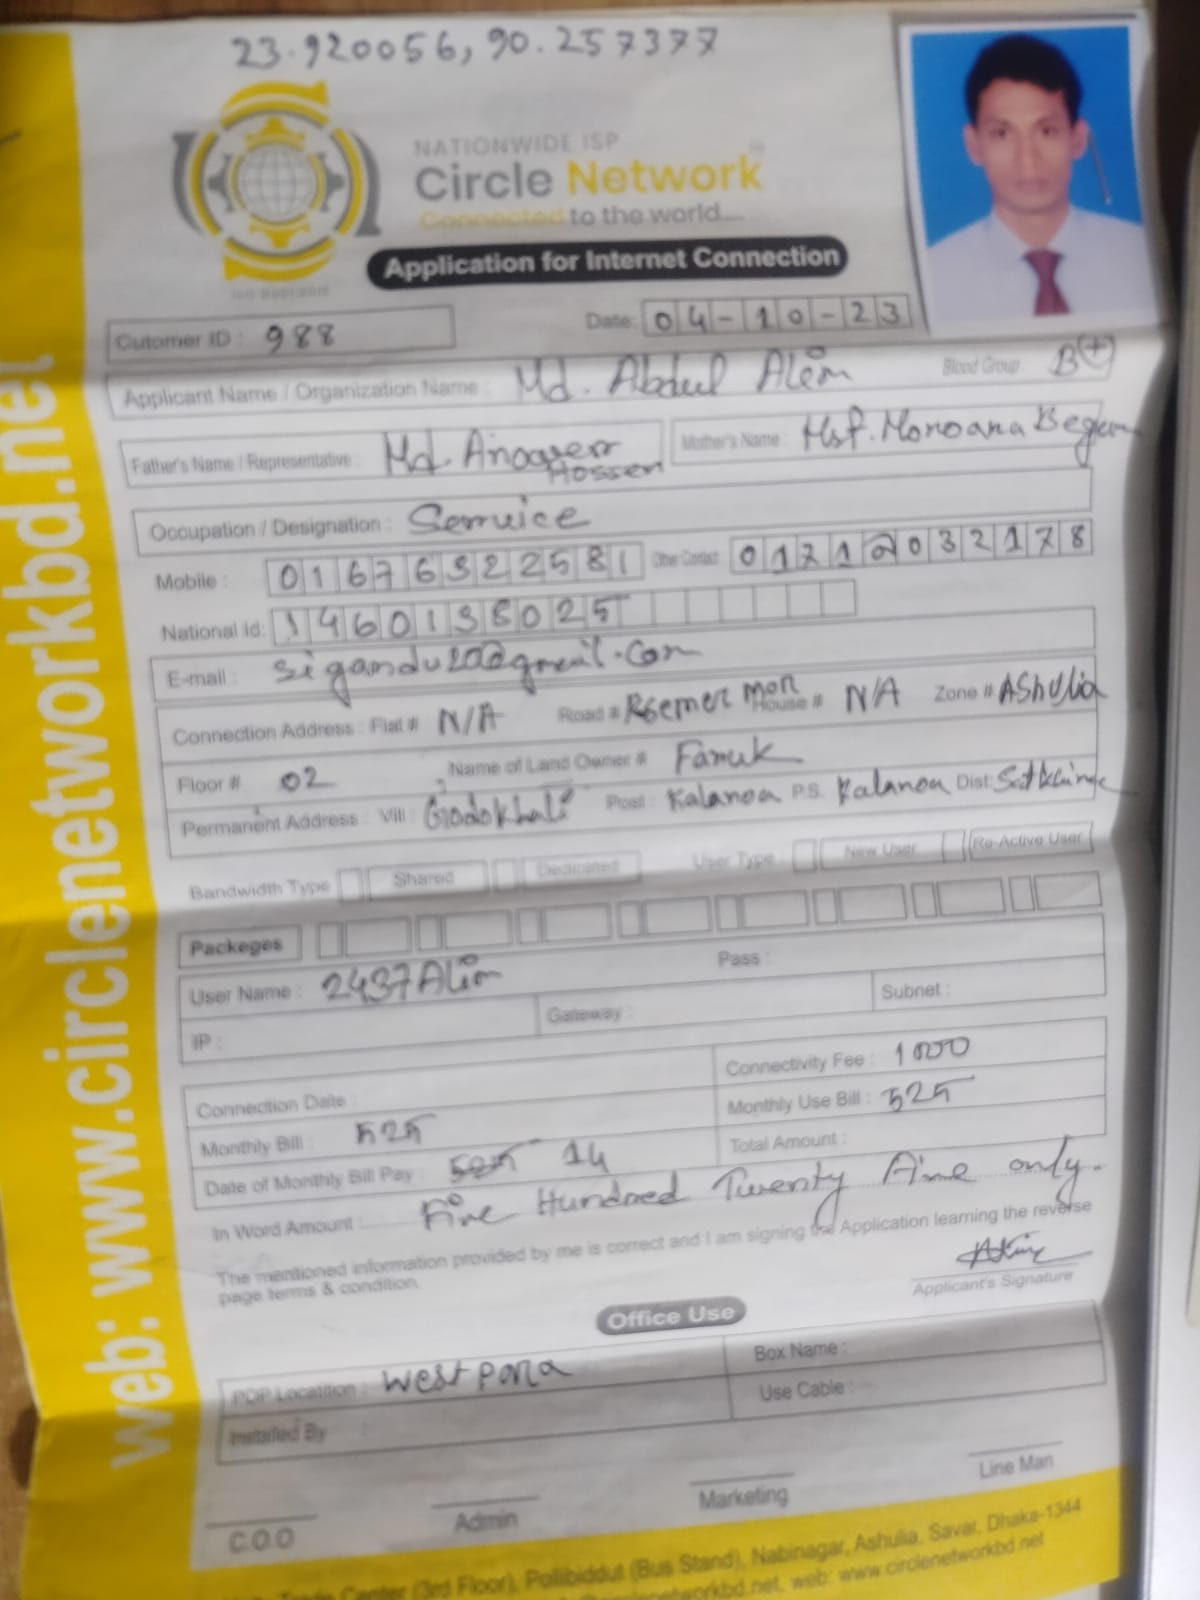 23.920056, 90.257377
NATIONWIDE ISP
Circle Network
Connected to the world....
Application for Internet Connection
Cutomer ID : 988
Date: 04-10-23
Applicant Name / Organization Name : Md. Abdul Alim
Blood Group B(+)
Father's Name / Representative : Md. Hossen
Mother's Name : Mst. Monoara Begum
Occupation / Designation : Service
Mobile : 01676322581 Other Contact: 01712032178
National Id: 1460138025
E-mail : @gmail.com
Connection Address : Flat # N/A Road # House # N/A Zone # Ashulia
Floor # 02 Name of Land Owner # Faruk
Permanent Address : Vill : Godokhali Post : Kalaroa P.S. Kalaroa Dist:
Bandwidth Type Shared Dedicated User Type : New User Re-Active User
Packeges
User Name : 2437Alim Pass :
IP : Gateway : Subnet :
Connection Date : Connectivity Fee : 1000
Monthly Bill : 525 Monthly Use Bill : 525
Date of Monthly Bill Pay : 14 Total Amount :
In Word Amount : Five Hundred Twenty Five only.
The mentioned information provided by me is correct and I am signing the Application learning the reverse
page terms & condition.
Applicant's Signature
Office Use
POP Locatition : West para Box Name :
Installed By : Use Cable :
C.O.O Admin Marketing Line Man
Trade Center (3rd Floor), Pollibiddut (Bus Stand), Nabinagar, Ashulia, Savar, Dhaka-1344
web: www.circlenetworkbd.net
web: www.circlenetworkbd.net